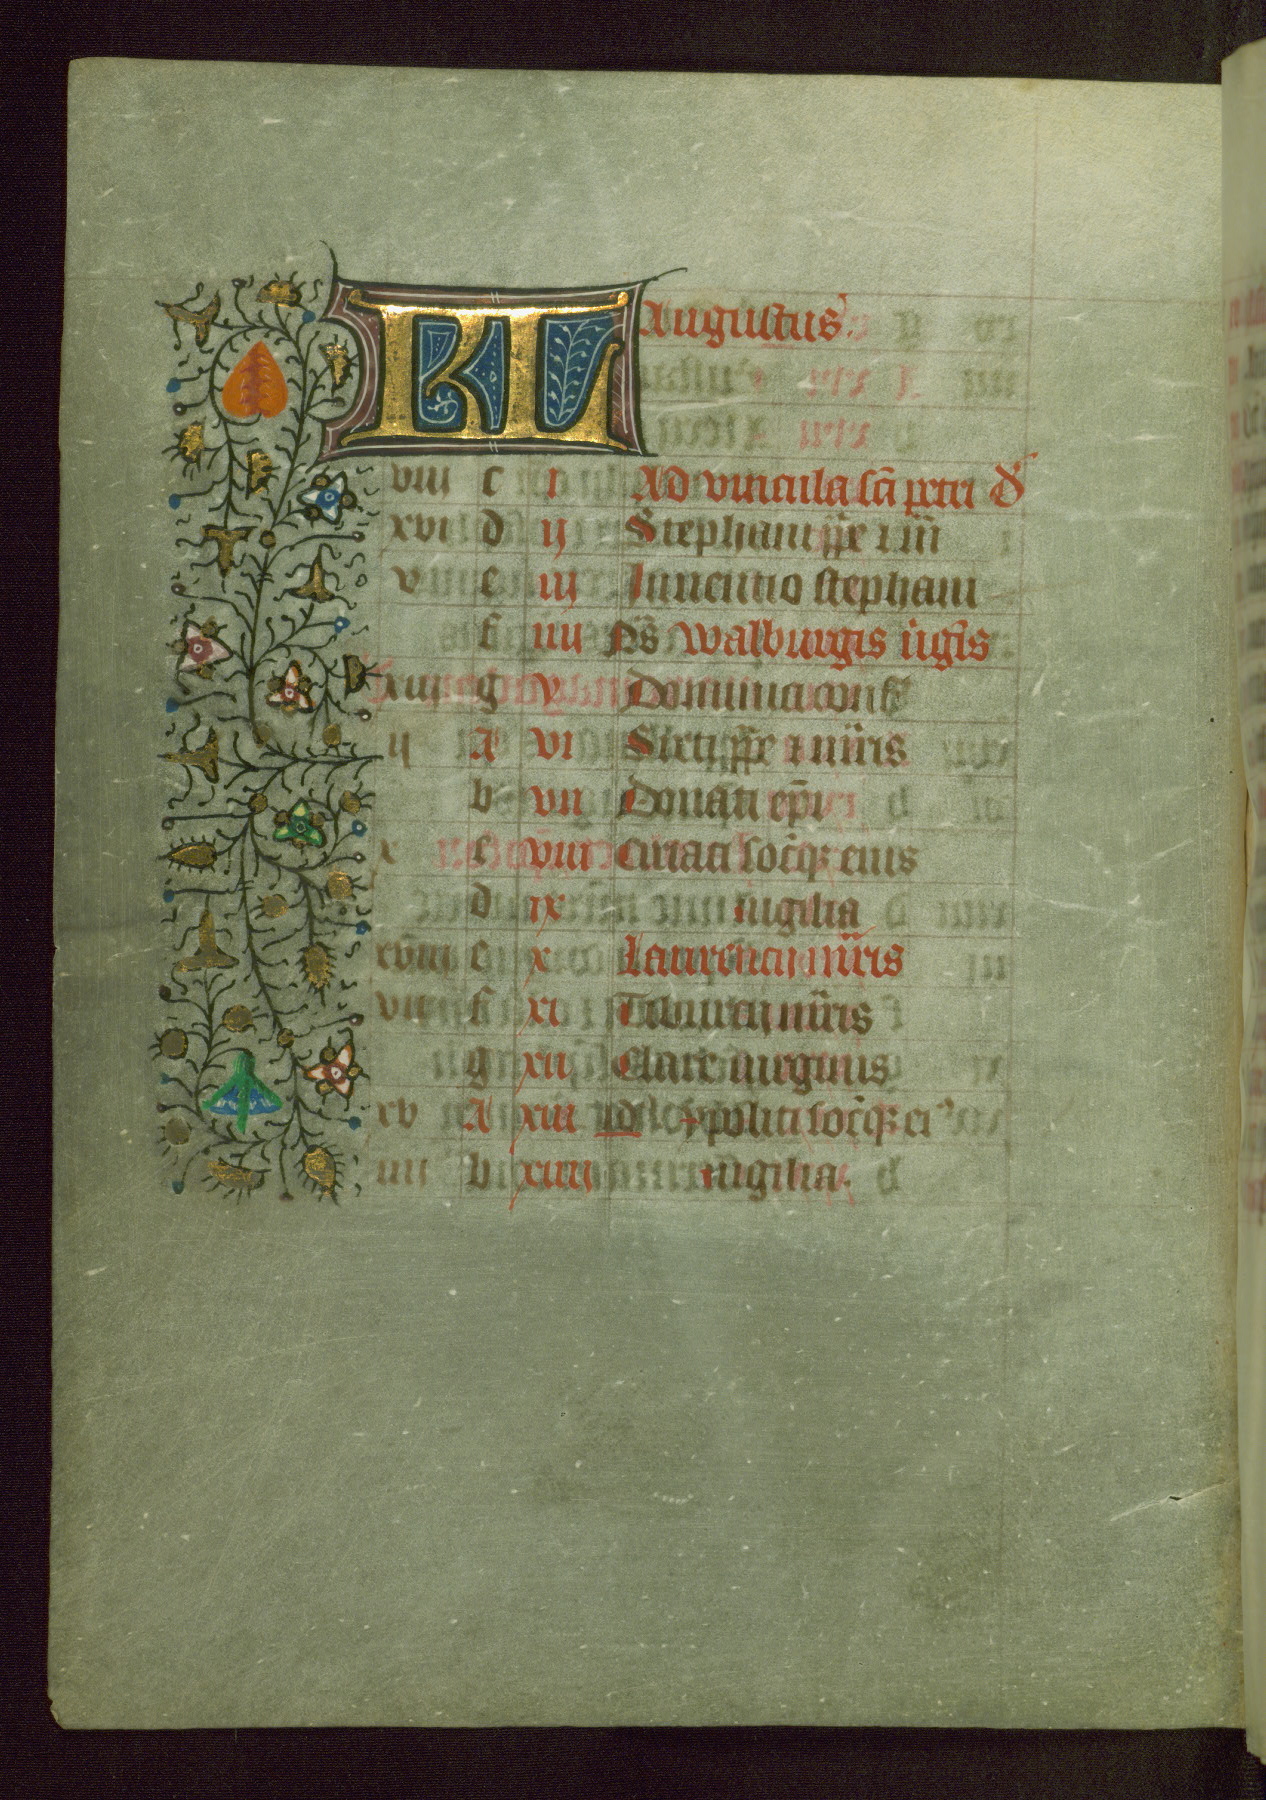 KL Augustus.
viii c i Ad vincula sci petri d'
xvi d ij Stephani pp̄e ⁊ m̄
v e iij Inuentio stephani
f iiij N̄s Walburgis u'gīs
xiij g v Dominici conf'
ij A vi Sixti pp̄e ⁊ m̄ris
b vij Donati ep̄i
x c viii Ciriaci soc̄q; eius
d ix uigilia
xviij e x Laurencij m̄ris
vij f xi Tiburcij m̄ris
g xij Clare uirginis
xv A xiii id ypoliti soc̄q; ei9
iiii b xiiij uigilia.